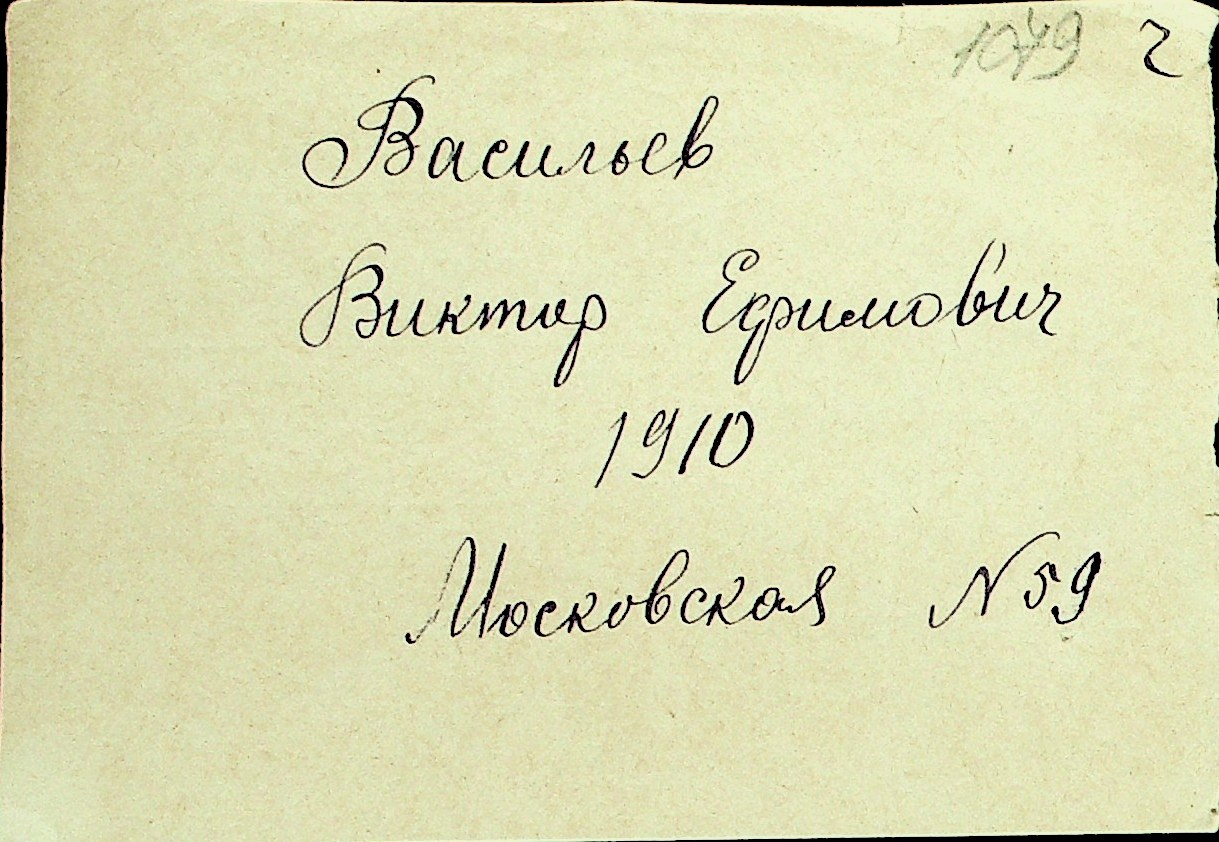 1079 ч
Васильев
Виктор Ефимович
1910
Московская N 59